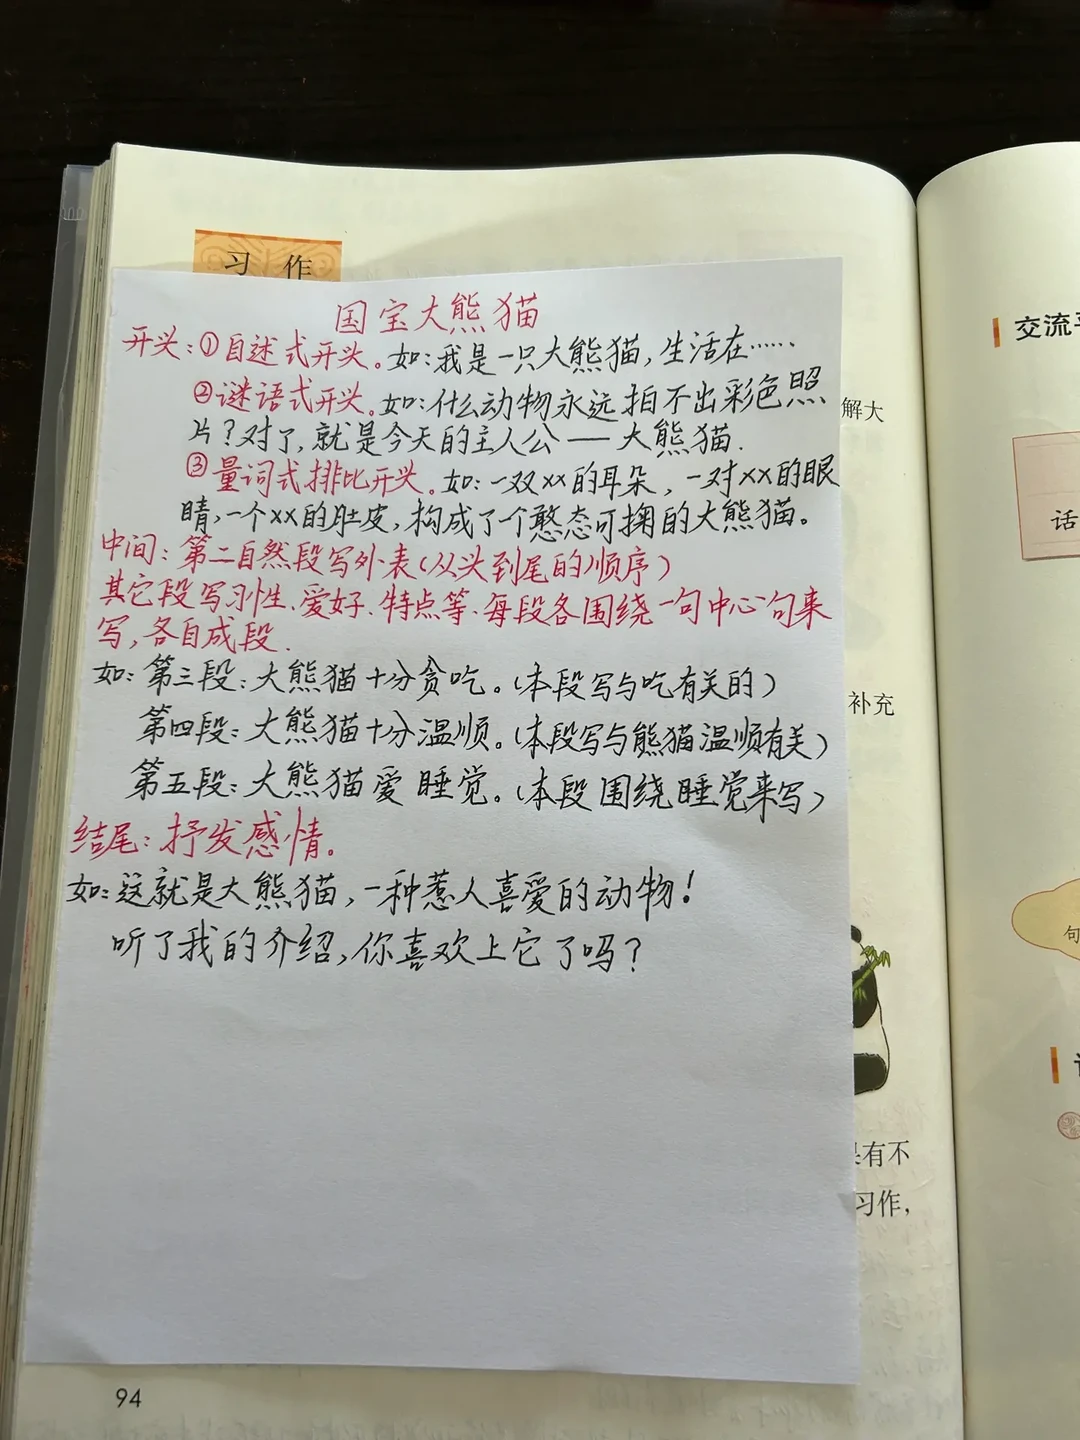 习 作
国宝大熊猫
开头：①自述式开头。如：我是一只大熊猫，生活在……
②谜语式开头。如：什么动物永远拍不出彩色照
片？对了，就是今天的主人公——大熊猫.
③量词式排比开头。如：一双xx的耳朵，一对xx的眼
睛，一个xx的肚皮，构成了个憨态可掬的大熊猫。
中间：第二自然段写外表（从头到尾的顺序）
其它段写习性、爱好、特点等、每段各围绕一句中心句来
写，各自成段.
如：第三段：大熊猫十分贪吃。（本段写与吃有关的）
第四段：大熊猫十分温顺。（本段写与熊猫温顺有关）
第五段：大熊猫爱睡觉。（本段围绕睡觉来写）
结尾：抒发感情。
如：这就是大熊猫，一种惹人喜爱的动物！
听了我的介绍，你喜欢上它了吗？
解大
补充
果有不
习作，
94
交流
话
句